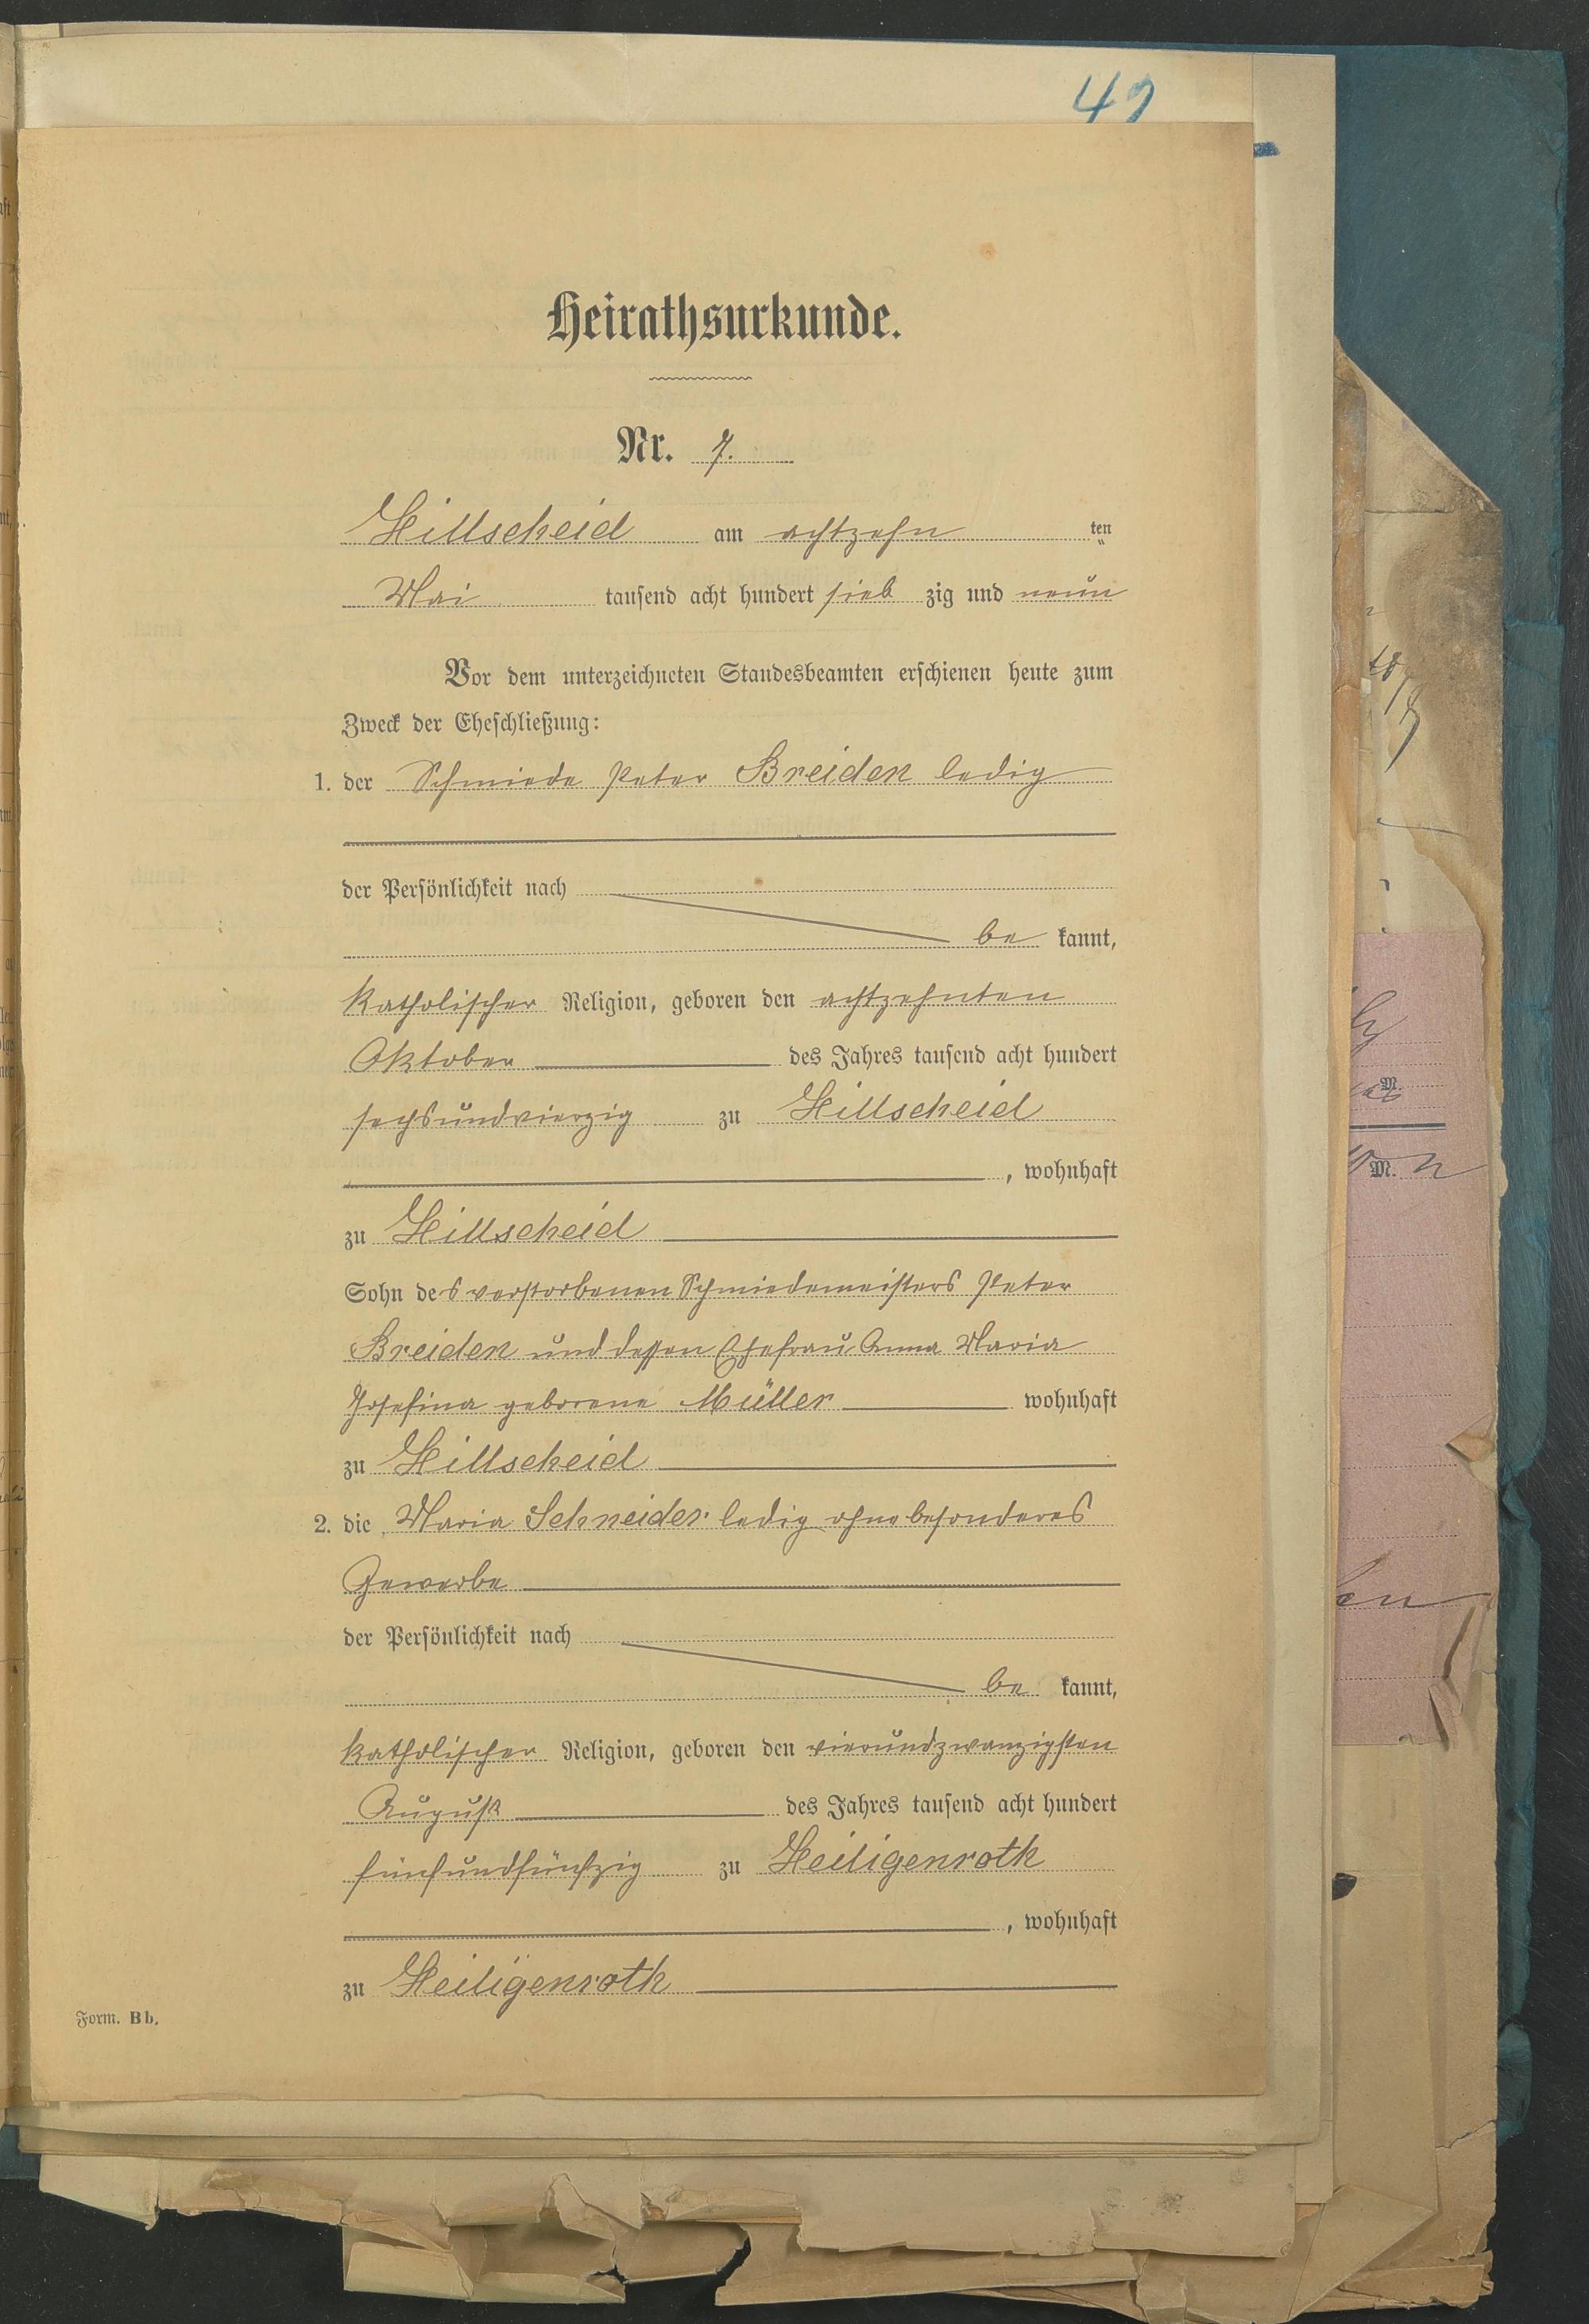 49
Heirathsurkunde.
Nr. 7.
Hillscheid am achtzehn ten
Mai tausend acht hundert sieb zig und neun
Vor dem unterzeichneten Standesbeamten erschienen heute zum
Zweck der Eheschließung:
1. der Schmiede Peter Breiden ledig
der Persönlichkeit nach
be kannt,
katholischer Religion, geboren den achtzehnten
Oktober des Jahres tausend acht hundert
sechsundvierzig zu Hillscheid
, wohnhaft
zu Hillscheid
Sohn des verstorbenen Schmiedemeisters Peter
Breiden und dessen Ehefrau Anna Maria
Josefina geborene Müller wohnhaft
zu Hillscheid
2. die Maria Schneider ledig ohne besonderes
Gewerbe
der Persönlichkeit nach
be kannt,
katholischer Religion, geboren den vierundzwanzigsten
August des Jahres tausend acht hundert
fünfundfünfzig zu Heiligenroth
, wohnhaft
zu Heiligenroth
Form. Bb.
M.
M.